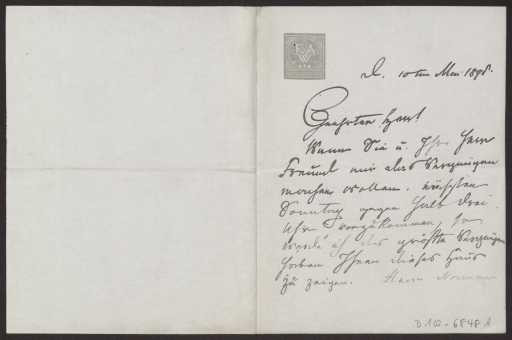 d. 10ten Mai 1898.
Geehrter Herr!
Wenn Sie u. Ihr Herr
Freund mir das Vergnügen
machen wollen, nächsten
Sonntag gegen halb drei
Uhr vorzukommen, so
werde ich das größte Vergnügen
haben Ihnen dieses Haus
zu zeigen. Hans
D 102-6848 A